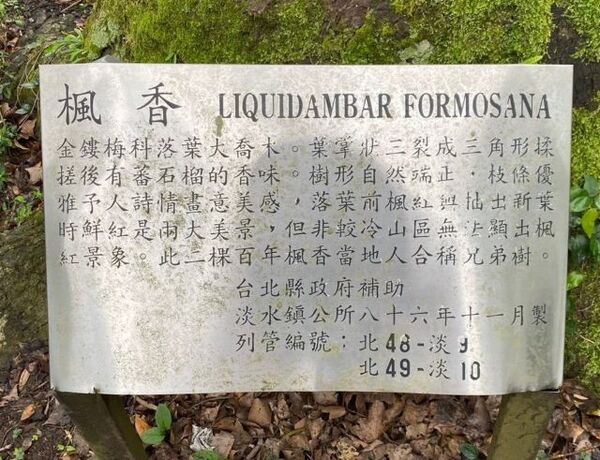 楓香 LIQUIDAMBAR FORMOSANA
金鏤梅科落葉大喬木。葉掌狀三裂成三角形揉
搓後有蕃石榴的香味。樹形自然端正，枝條優
雅予人詩情畫意美感，落葉前楓紅與抽出新葉
時鮮紅是兩大美景，但非較冷山區無法顯出楓
紅景象。此二棵百年楓香當地人合稱兄弟樹。
台北縣政府補助
淡水鎮公所八十六年十一月製
列管編號：北48-淡9
北49-淡10